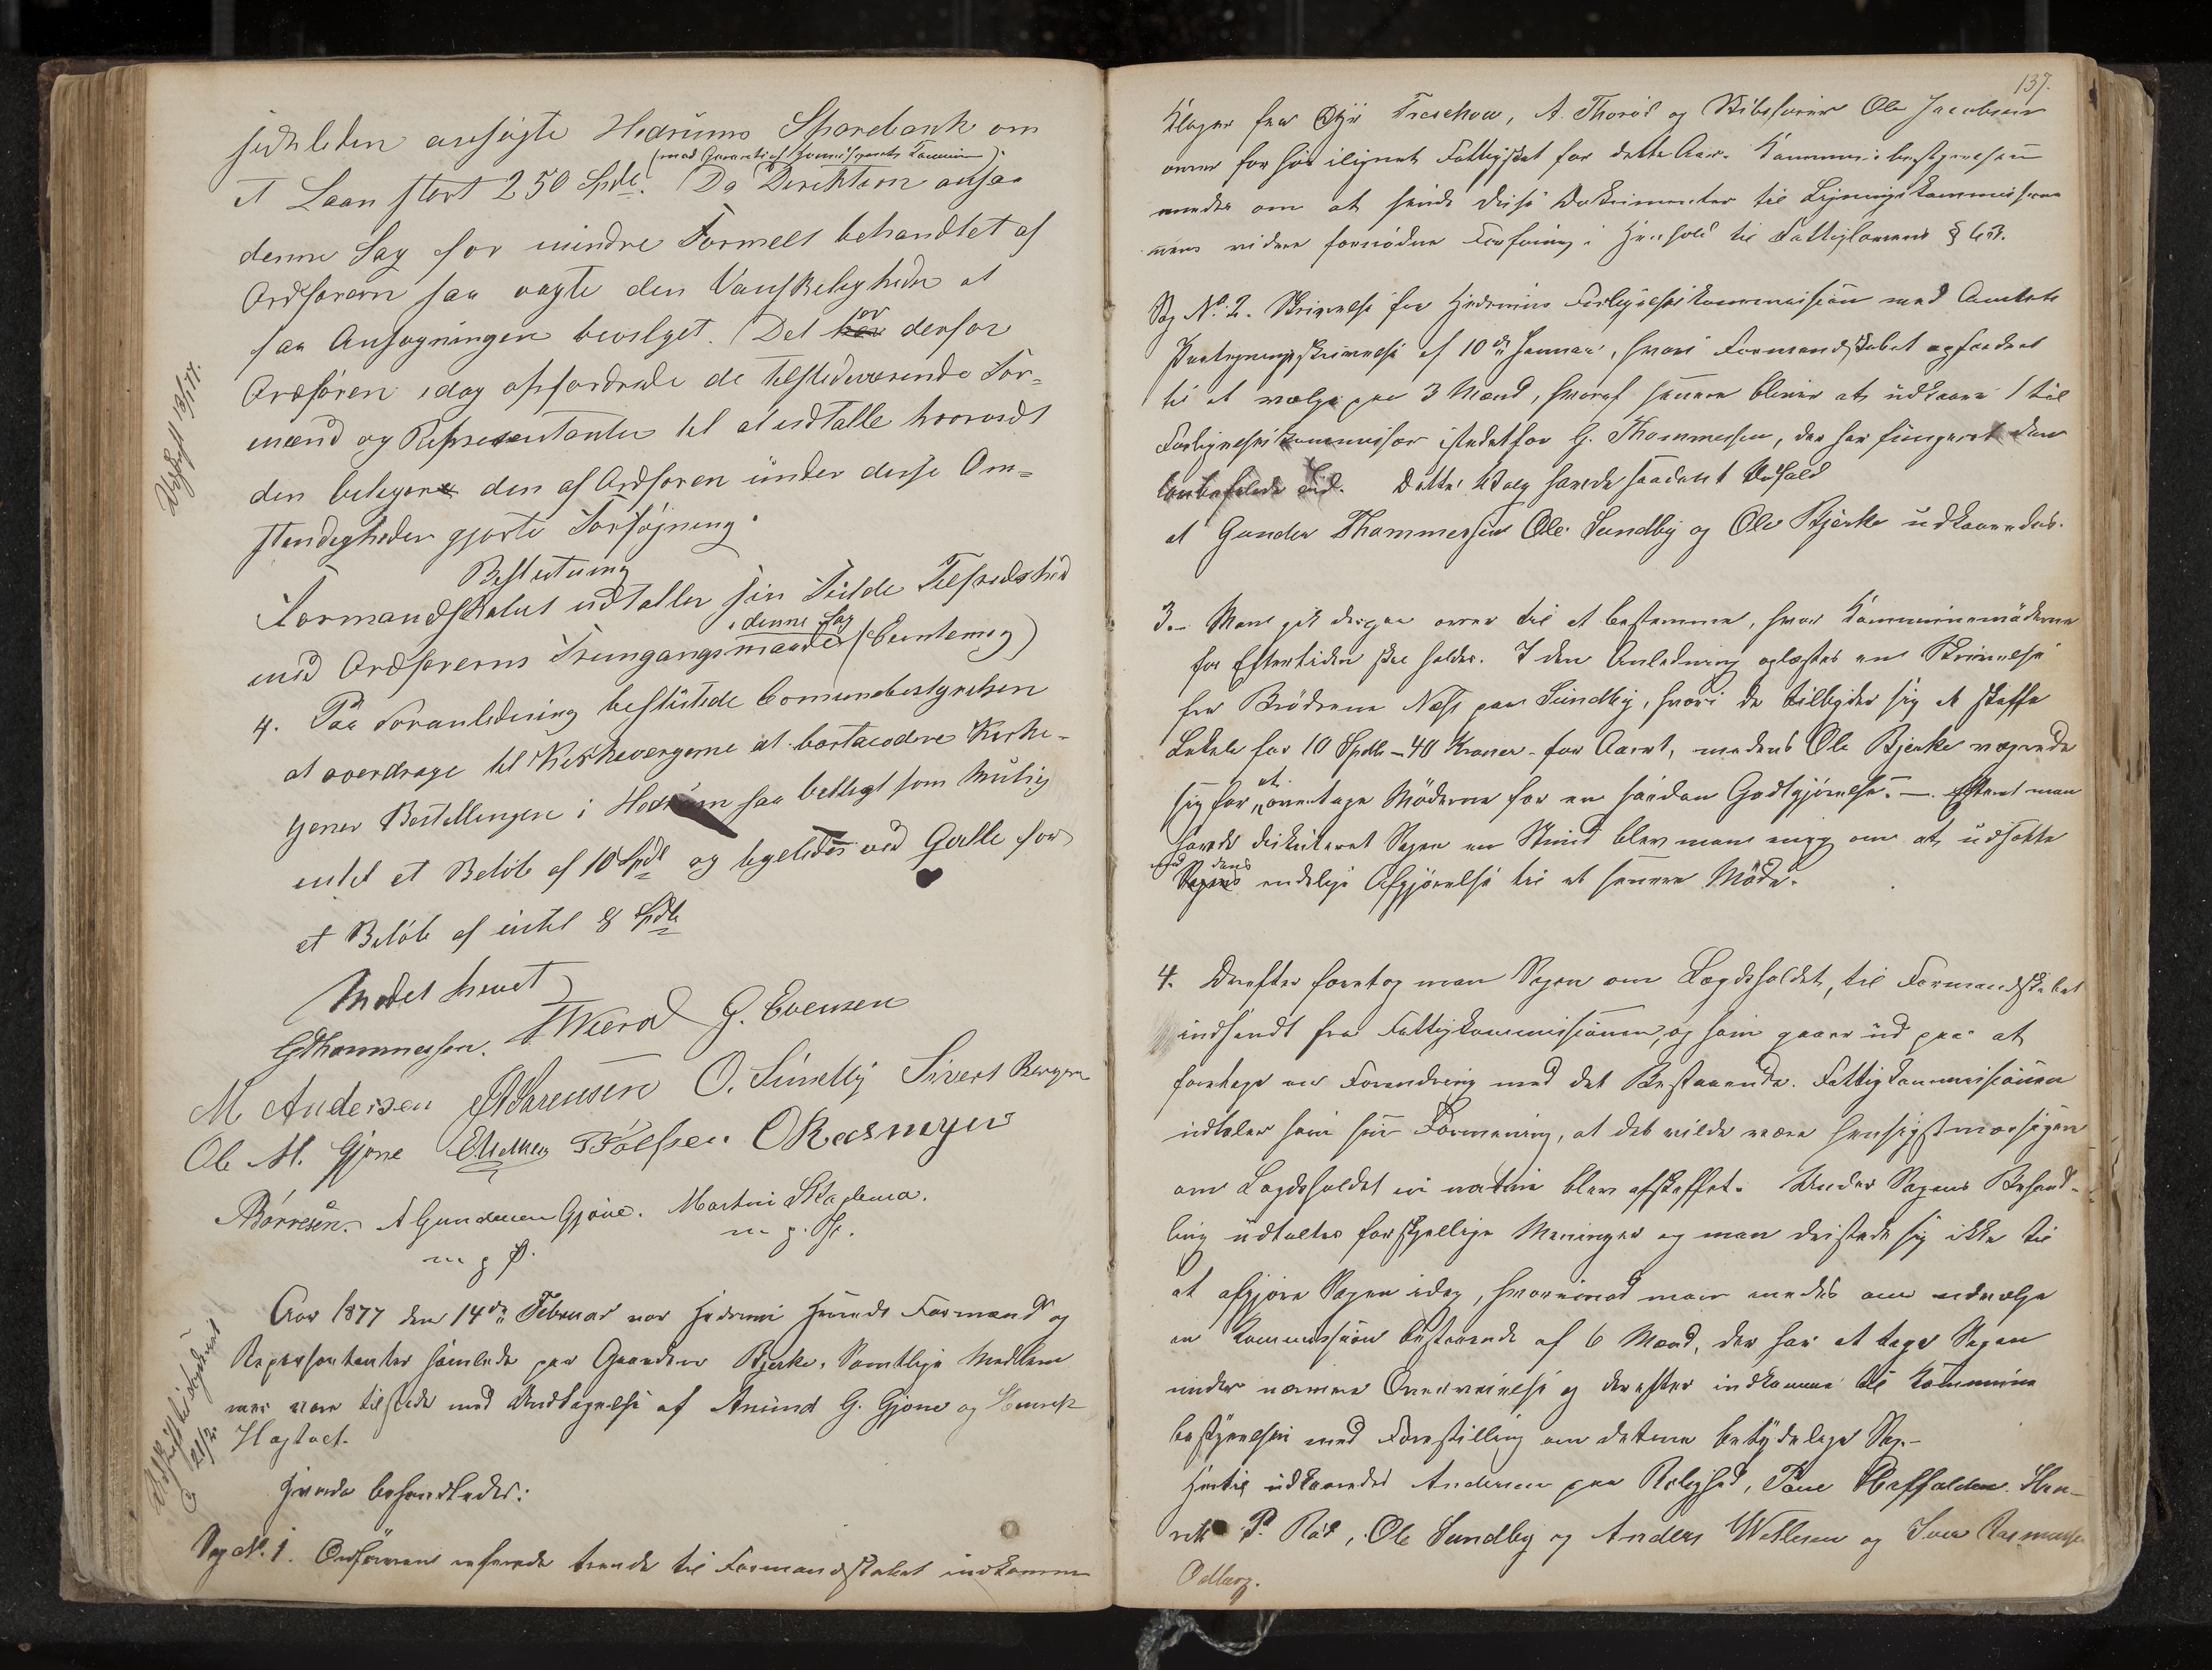 sidstleden ansøgte Hedrums Sparebank om
(med Garanti af
et Laan stort 250 Spdl. Da Direktion ansaa
denne Sag for mindre formelt behandlet af
Ordføreren saa vagte den Vanskeligheder at
faa Ansøgningen bevilget. Det har derfor
Ordføren idag opfordrede de tilstedeværende For=
mænd og Representanter til at udtalle hvorvidt
den af Ordføren under disse Om=
stændigheder gjorte Forføjning.
Beslutning
Formandskabet udtaller sin fulde Tilfredshed
i denne Sag
med Ordførerens Fremgangsmaade (Eenstemig)
4. Paa Foranledning besluttede Comunebestyrelsen
at overdrage til Kirkevergerne at bortacodere Kirke-
gener Bestillingen i Hedrum saa billigt som muligt
intil et Beløb af 10 Spdl og ligeledes ved Qvelle for
et Beløb af intil 8 Spdl
Mødet hævet
GThommessen. G. Evensen
M Andersen O. Sundby Sivert Bergen
Ole M. Gjone ORasmusen
Børresen. A Gundersen Gjøne. Martin
m p P. m p. P.
Udskrift 13/1 77.
Aar 1877 den 14de Februar var Hedrum Herreds Formænd og
Representanter samlede paa Gaarden Bjerke. Samtlige Medlem
mer vare tilstede med Undtagelse af Amund G. Gjone og Henrik
Hagtvet.
Hvorda behandledes:
Udskrift
21/2.
Sag No. 1. Ordføreren refererede trende til Formandskabet indkomne
137.
Klager fra Eier Treschow, A. Thorød og Skibsfører Ole Jacobsen
over for høi ilignet Fattigskat for dette Aar. Kommunebestyrelsen
enedes om at sende disse Dokumenter til Ligningskommissionen
videre fornøden Forføining i Henhold til Fattiglovens § 63.
Sag No. 2. Skrivelse fra Hedrums Forligelseskommission med Amtets
Paategningsskrivelse af 10de Januar, hvori Formandskabet opfordres
til at vælge 3 Mænd, hvoraf senere bliver at udkaare 1 til
Forligelseskommissær istedetfor G. Thommessen, der har fungeret den
lovbefalede Tid. Dette Valg havde saadant Udfald
at Gunder Thommessen Ole Sundby og Ole Bjerke udkaaredes.
3. Man gik derpaa over til at bestemme, hvor Kommunemøderne
for Eftertiden skal holdes. I den Anledning oplæstes en Skrivelse
fra Brødrene Næss paa Sundby, hvori de tilbyder sig at skaffe
Lokale for 10 Spdl - 40 Kroner - for Aaret, medens Ole Bjerke vægrede
at
sig for overtage Møderne for en saadan Godtgjørelse. - Efterat man
havde diskuteret Sagen en Stund blev man enig om at udsætte
med dens
Sagens endelige Afgjørelse til et senere Møde.
4. Derefter foretog man Sagen om Lægdsholdet, til Formandskabet
indsendt fra Fattigkommissionen, og som gaar ud paa at
foretage en Forandring med det Bestaaende. Fattigkommissionen
udtaler som sin Formening, at det vilde være hensigtmæssigen
om Lægdsholdet in natura blev afskaffet. Under Sagens Behand-
ling udtaltes forskjellige Meninger og man dristede sig ikke til
at afgjøre Sagen idag, hvorimod man enedes om udvælge
en Kommission bestaaende af 6 Mænd, der har at tage Sagen
under nærmere Overveielse og derefter indkomme til Kommune
bestyrelsen med Forestilling om denne betydelige Sag.-
Hertil udkaaredes Andersen paa Rolighed, Hen-
rik P. Rød, Ole Sundby og Anders Wetlesen og Iver Rasmussen
Odberg.